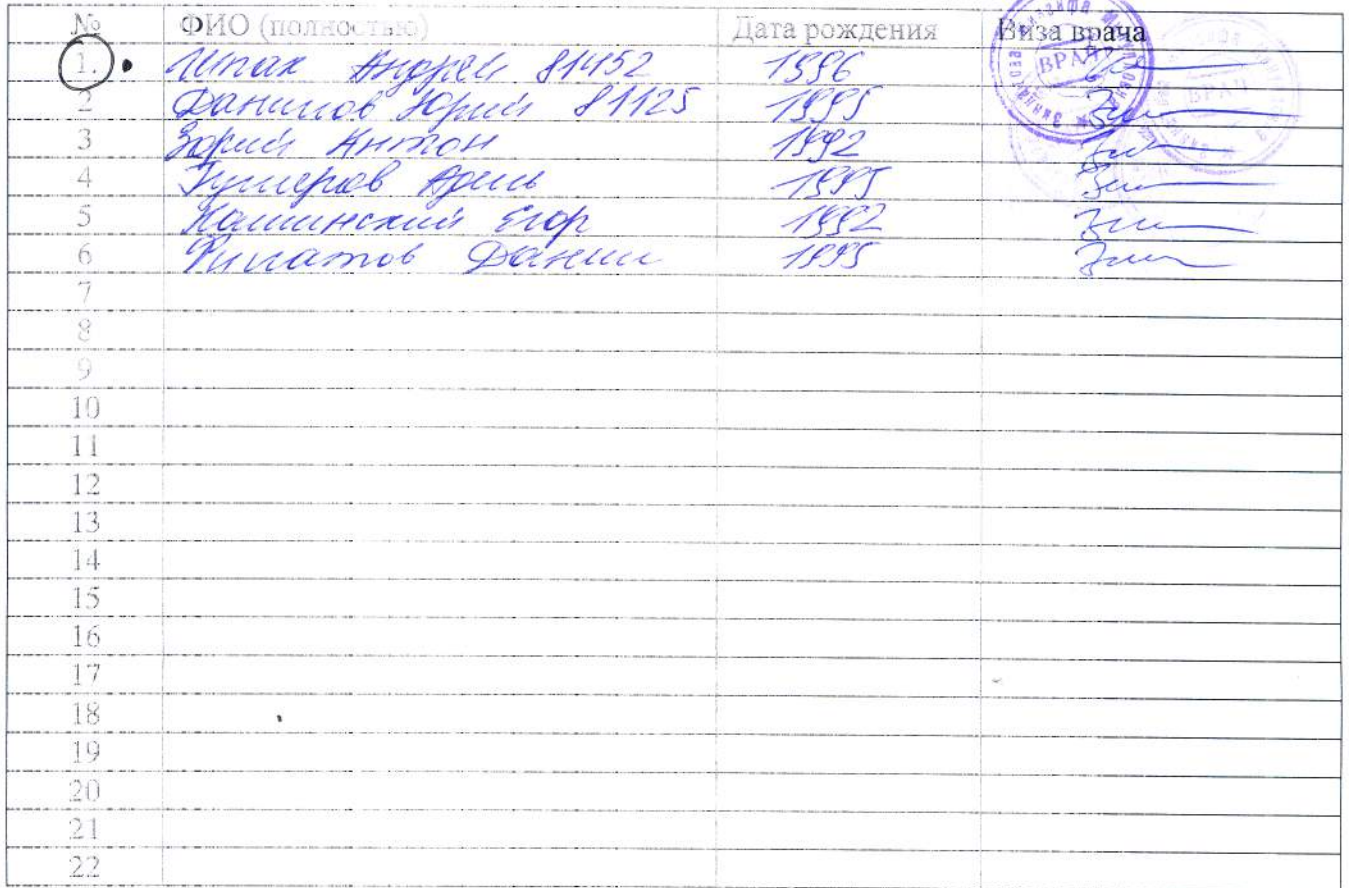 № ФИО (полностью) Дата рождения Виза врача
1. Шпак Андрей 81452 1996
2 Данилов Юрий 81125 1995
3 Зорий Антон 1992
4 Гумеров Адель 1995
5 Кашинский Егор 1992
6 Филатов Данил 1995
7
8
9
10
11
12
13
14
15
16
17
18
19
20
21
22
ВРАЧ
ВРАЧ